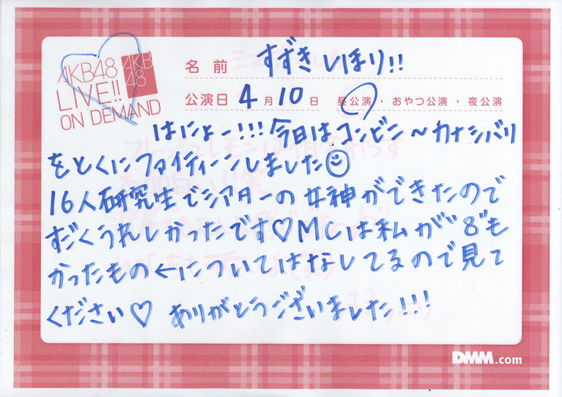 AKB48
LIVE!!
ON DEMAND
AKB
48
名前 すずきしほり!!
公演日 4月10日 昼公演・おやつ公演・夜公演
はにょー!!!今日はコンビニ〜カナシバリ
をとくにファイティーンしました☺
16人研究生でシアターの女神ができたので
すごくうれしかったです♡MCは私が“8”も
かったもの←についてはなしてるので見て
ください♡ ありがとうございました!!!
DMM.com